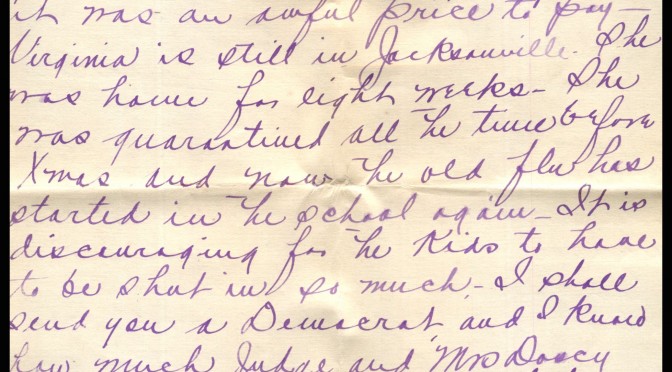 it was an awful price to pay—
Virginia is still in Jacksonville. She
was home for eight weeks— She
was quarantined all the time before
Xmas and now the old flu has
started in the school again— It is
discouraging for the Kids to have
to be shut in so much.— I shall
send you a Democrat and I know
how much Judge and Mrs Doocy